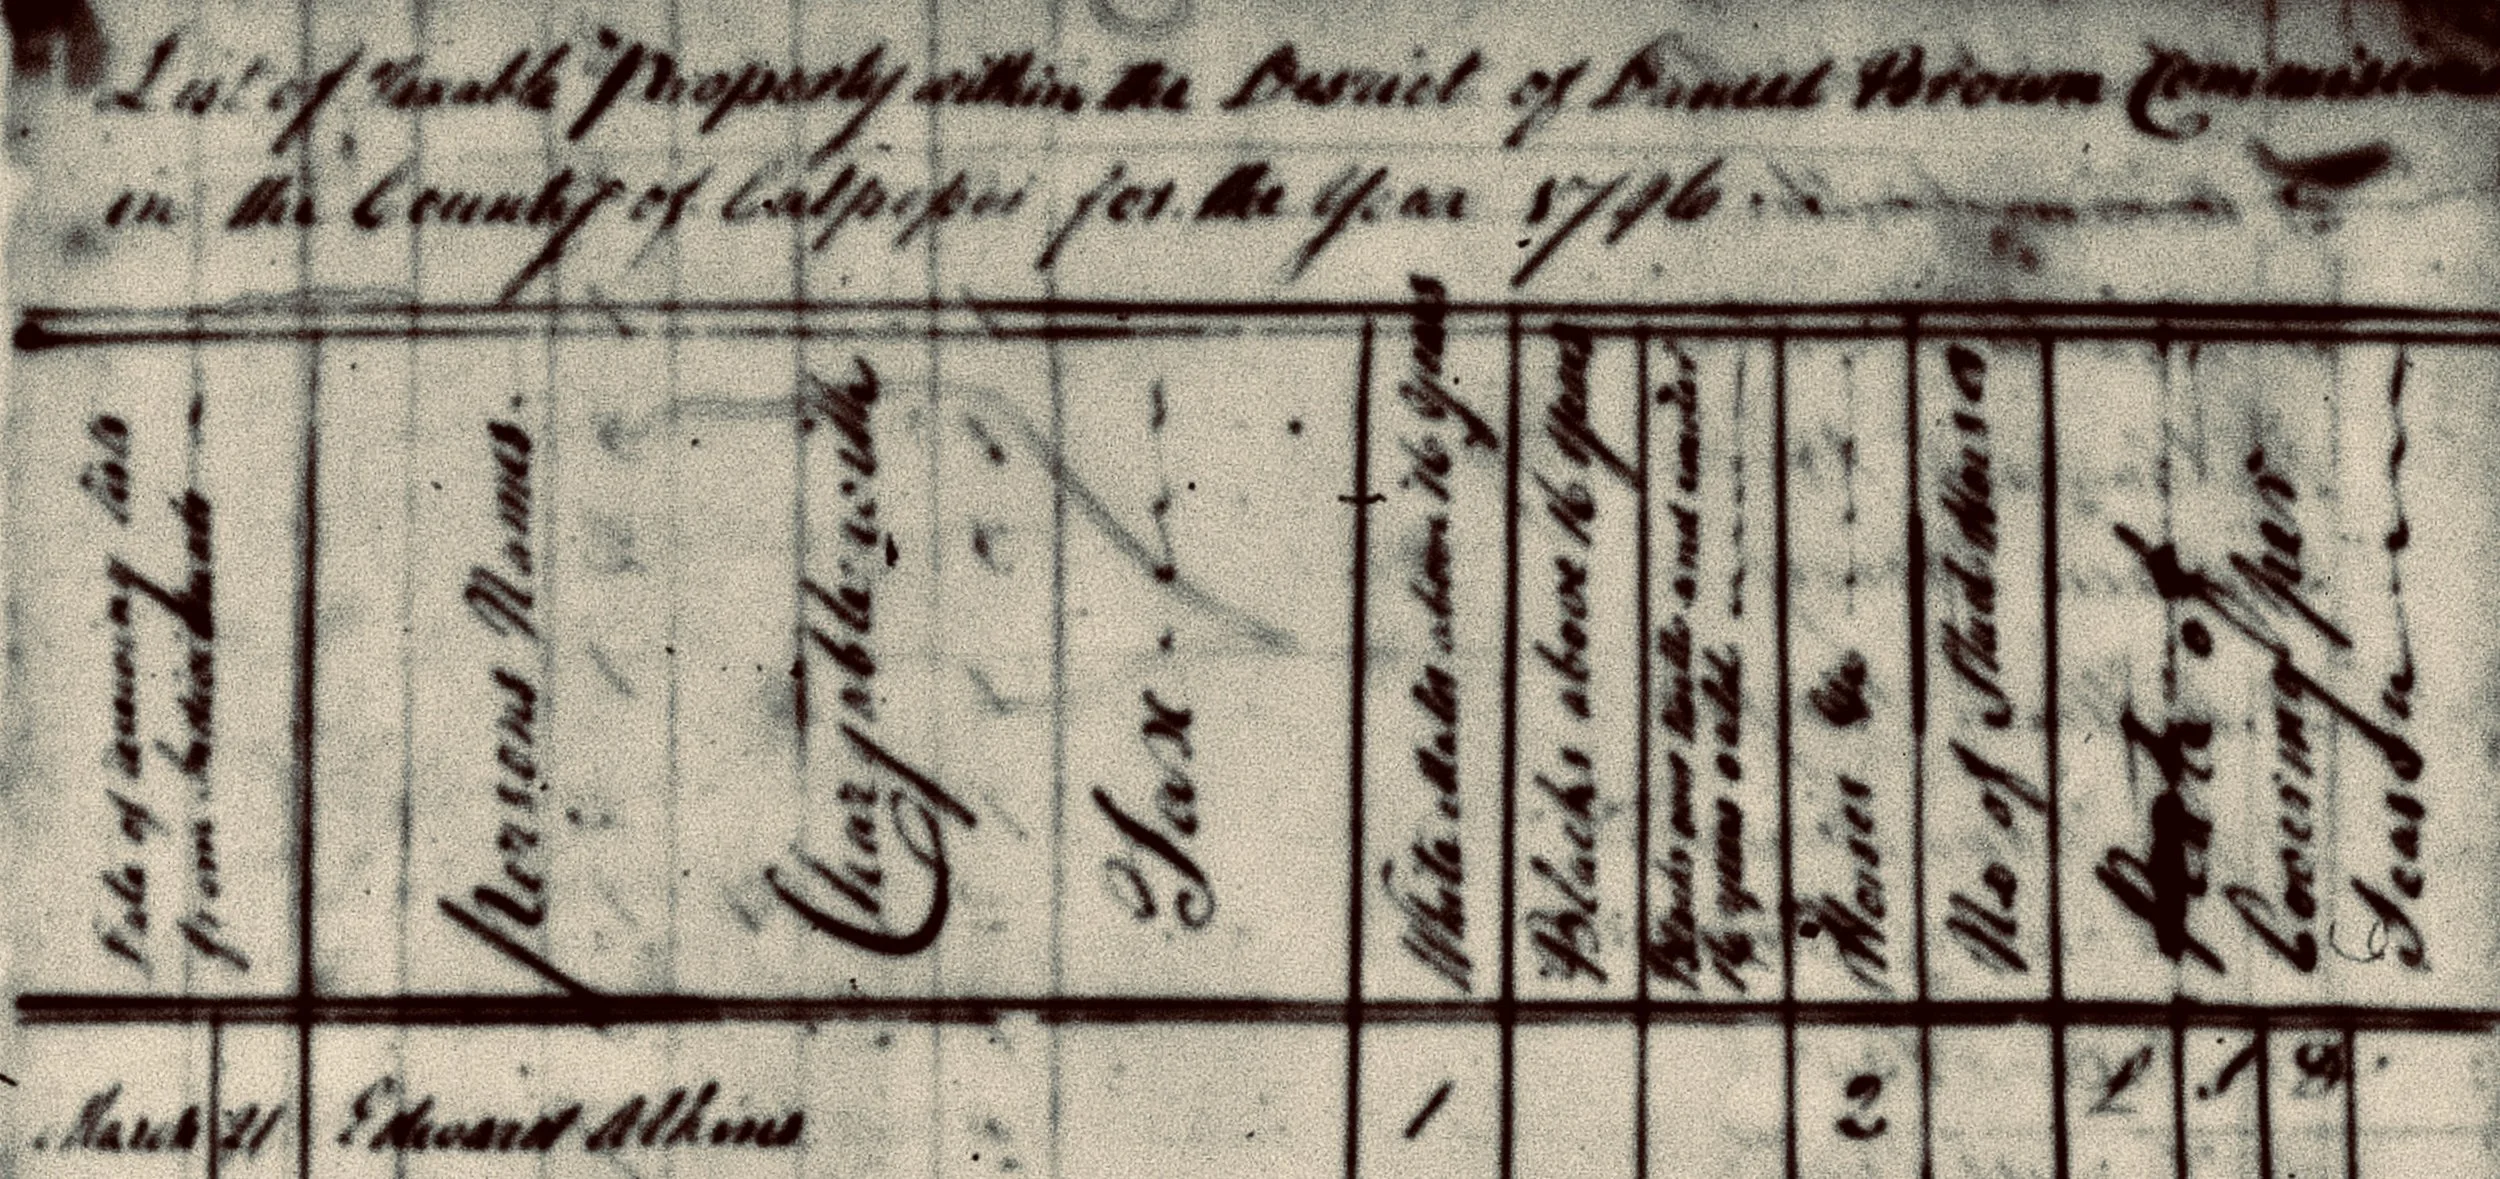 List of Taxable Property within the District of Daniel Brown Commissioner
in the County of Culpeper for the Year 1796
Date of receiving lists
from Individuals
Persons Names.
Chargable with
Tax.
White Males above 16 Years
Blacks above 16 Years
Blacks over twelve and under
16 years old
Horses &c
No of Stud Horses
Rate of
Covering per
Season
March 21 Edward Atkins 1 2 L S D